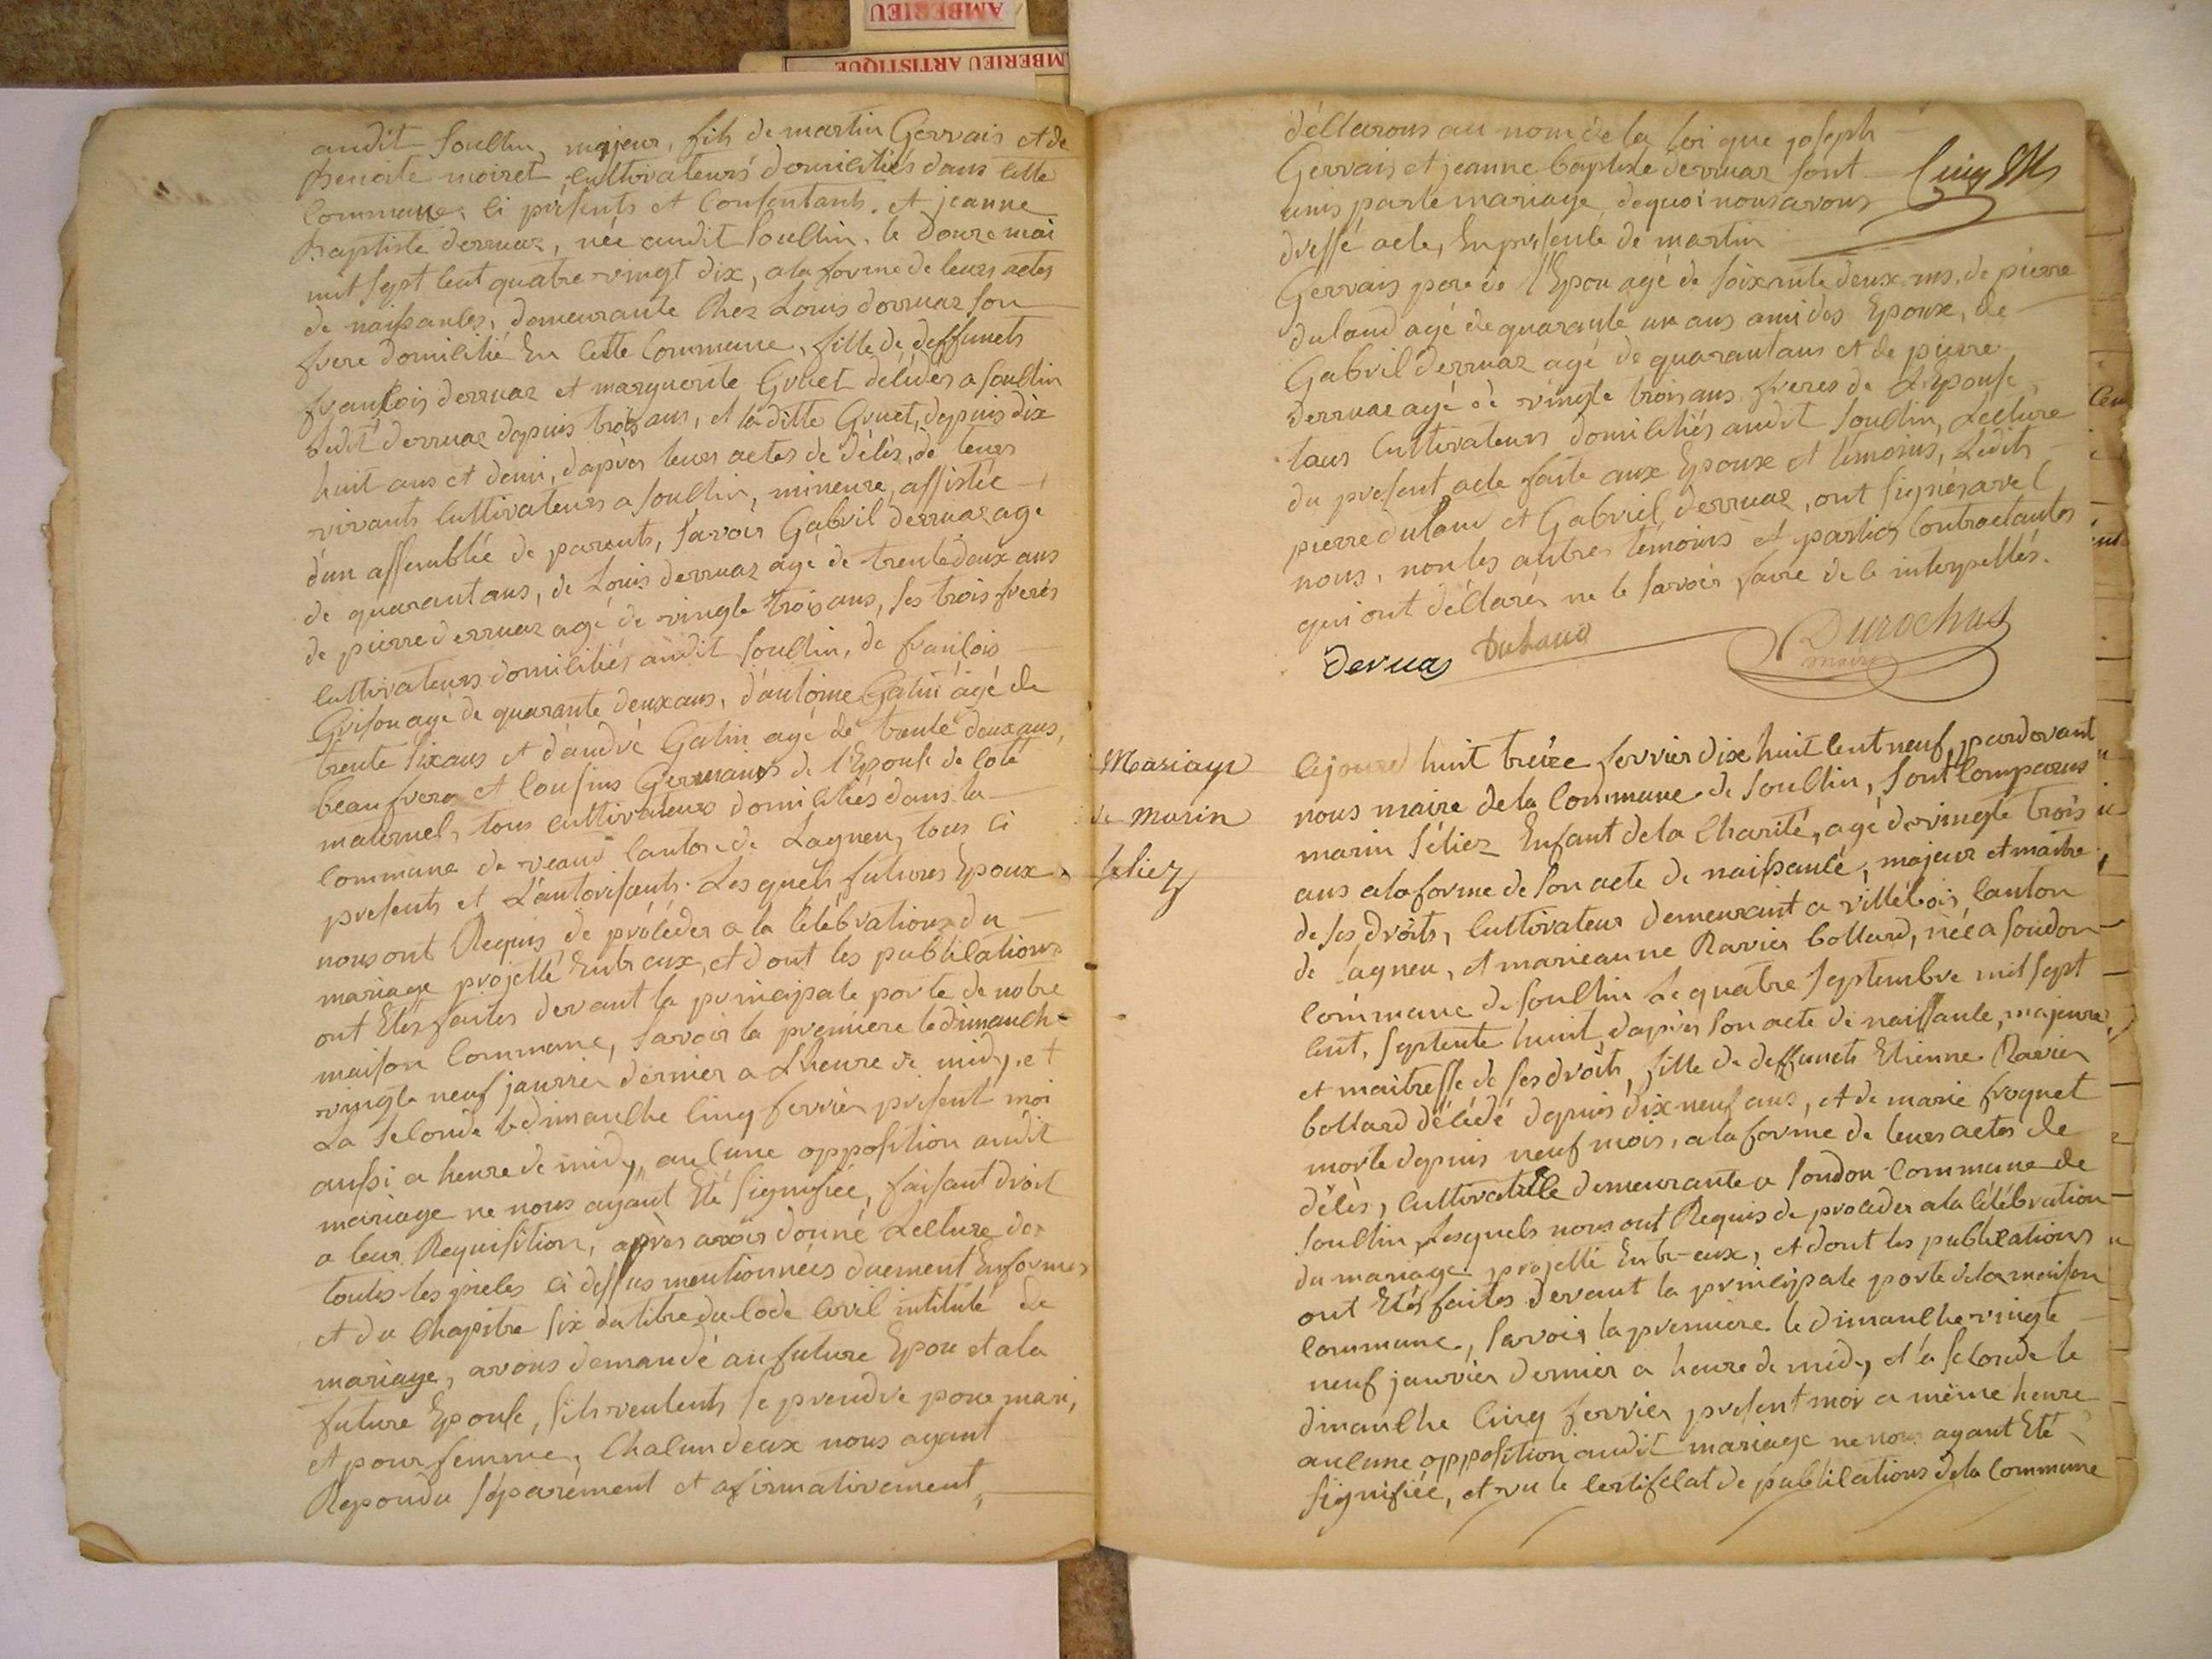 AMBERIEU
AMBERIEU ARTISTIQUE
audit Souclin, majeur, fils de martin Gervais et de
Benoite moiret, cultivateurs domiciliés dans cette
Commune, ci présents et Consentants. et jeanne
Baptiste derruaz, née audit Souclin, le douze mai
mil sept cent quatre-vingt dix, a la forme de leurs actes
de naissances, demeurante chez Louis derruaz son
frere domicilié En cette Commune, fille de deffunets
françois derruaz et marguerite Gruet décédés a Souclin
ledit derruaz depuis trois ans, et laditte Gruet, depuis dix
huit ans et demi, d'après leurs actes de décès, de leurs
vivants Cultivateurs a Souclin, mineure, assistée
d'un assemblée de parents, Savoir Gabriel derruaz agé
de quarant ans, de Louis derruaz agé de trente deux ans
de pierre derruaz agé de vingte trois ans, ses trois freres
cultivateurs domiciliés audit Souclin, de françois
Grison agé de quarante deux ans, d'antoine Gatin âgé de
trente Six ans et d'andré Gatin agé de trente deux ans,
beaufrere et Cousins Germains de l'Epouse de coté
maternel, tous cultivateurs domiciliés dans la
Commune de veaud Canton de Lagneu, tous ci
presents et L'autorisants. Les quels futures Epoux
nous ont Requis de procéder a la Célébration du
mariage projetté Entr'eux, et dont les publications
ont Etés faites devant la principale porte de notre
maison Commune, Savoir la premiere le dimanche
vingte neuf janvier dernier a L'heure de midy, et
La Seconde le dimanche cinq fevrier présent moi
aussi a heure de midy, aucune opposition audit
mariage ne nous ayant Eté Signifiée, faisant droit
a leur Requisition, après avoir donné Lecture de
toutes les pieces ci dessus mentionnées duement Enformes
et du Chapitre Six du titre du Code Civil intitulé de
mariage, avons demandé au future Epou et a la
future Epouse, s'ils veulents se prendre pour mari,
et pour femme, Chacun deux nous ayant
Repondu séparément et afirmativement,
déclarons au nom de la Loi que joseph
Gervais et jeanne baptiste derruaz sont
unis par le mariage, de quoi nous avons
dressé acte, En présence de martin
Gervais pere de l'Epou agé de soixante deux ans, de pierre
duland agé de quarante un ans ami des Epoux, de
Gabriel derruaz agé de quarant ans et de pierre
derruaz agé de vingte trois ans freres de L'Epouse,
tous Cultivateurs domiciliés audit Souclin, Lecture
du present acte faite aux Epoux et témoins, Ledits
pierre duland et Gabriel derruaz, ont signés avec
nous, non les autres témoins et parties Contractantes
qui ont déclarés ne le savoir faire de ce interpellés.
Deruas Duland Durochat
maire
Mariage
de Marin
Seliez
Cejourd huit treize fevrier dix huit cent neuf, pardevant
nous maire de la Commune de Souclin, Sont Comparus
marin Séliez Enfant de la Charité, agé de vingte trois
ans a la forme de Son acte de naissance, majeur et maitre
de ses droits, Cultivateur demeurant a villebois, Canton
de Lagneu, et marieanne Ravier bollard, née a Soudon
Commune de Souclin Le quatre Septembre mil sept
cent, Septente huit, d'après Son acte de naissance, majeure
et maitresse de ses droits, fille de deffunets Etienne Ravier
bollard décédé depuis dix neuf ans, et de marie froquet
morte depuis neuf mois, a la forme de leurs actes de
décès, Cultivatrice demeurante a Soudon Commune de
Souclin, Lesquels nous ont Requis de procéder a la Célébration
du mariage projetté Entr-eux, et dont les publications
ont Etés faites devant la principale porte de la maison
Commune, Savoir la premiere le dimanche vingte
neuf janvier dernier a heure de midy, et la Seconde le
dimanche cinq fevrier présent moi a même heure
aucune opposition audit mariage ne nous ayant Eté
Signifiée, et vu le Certificat de publications de la Commune